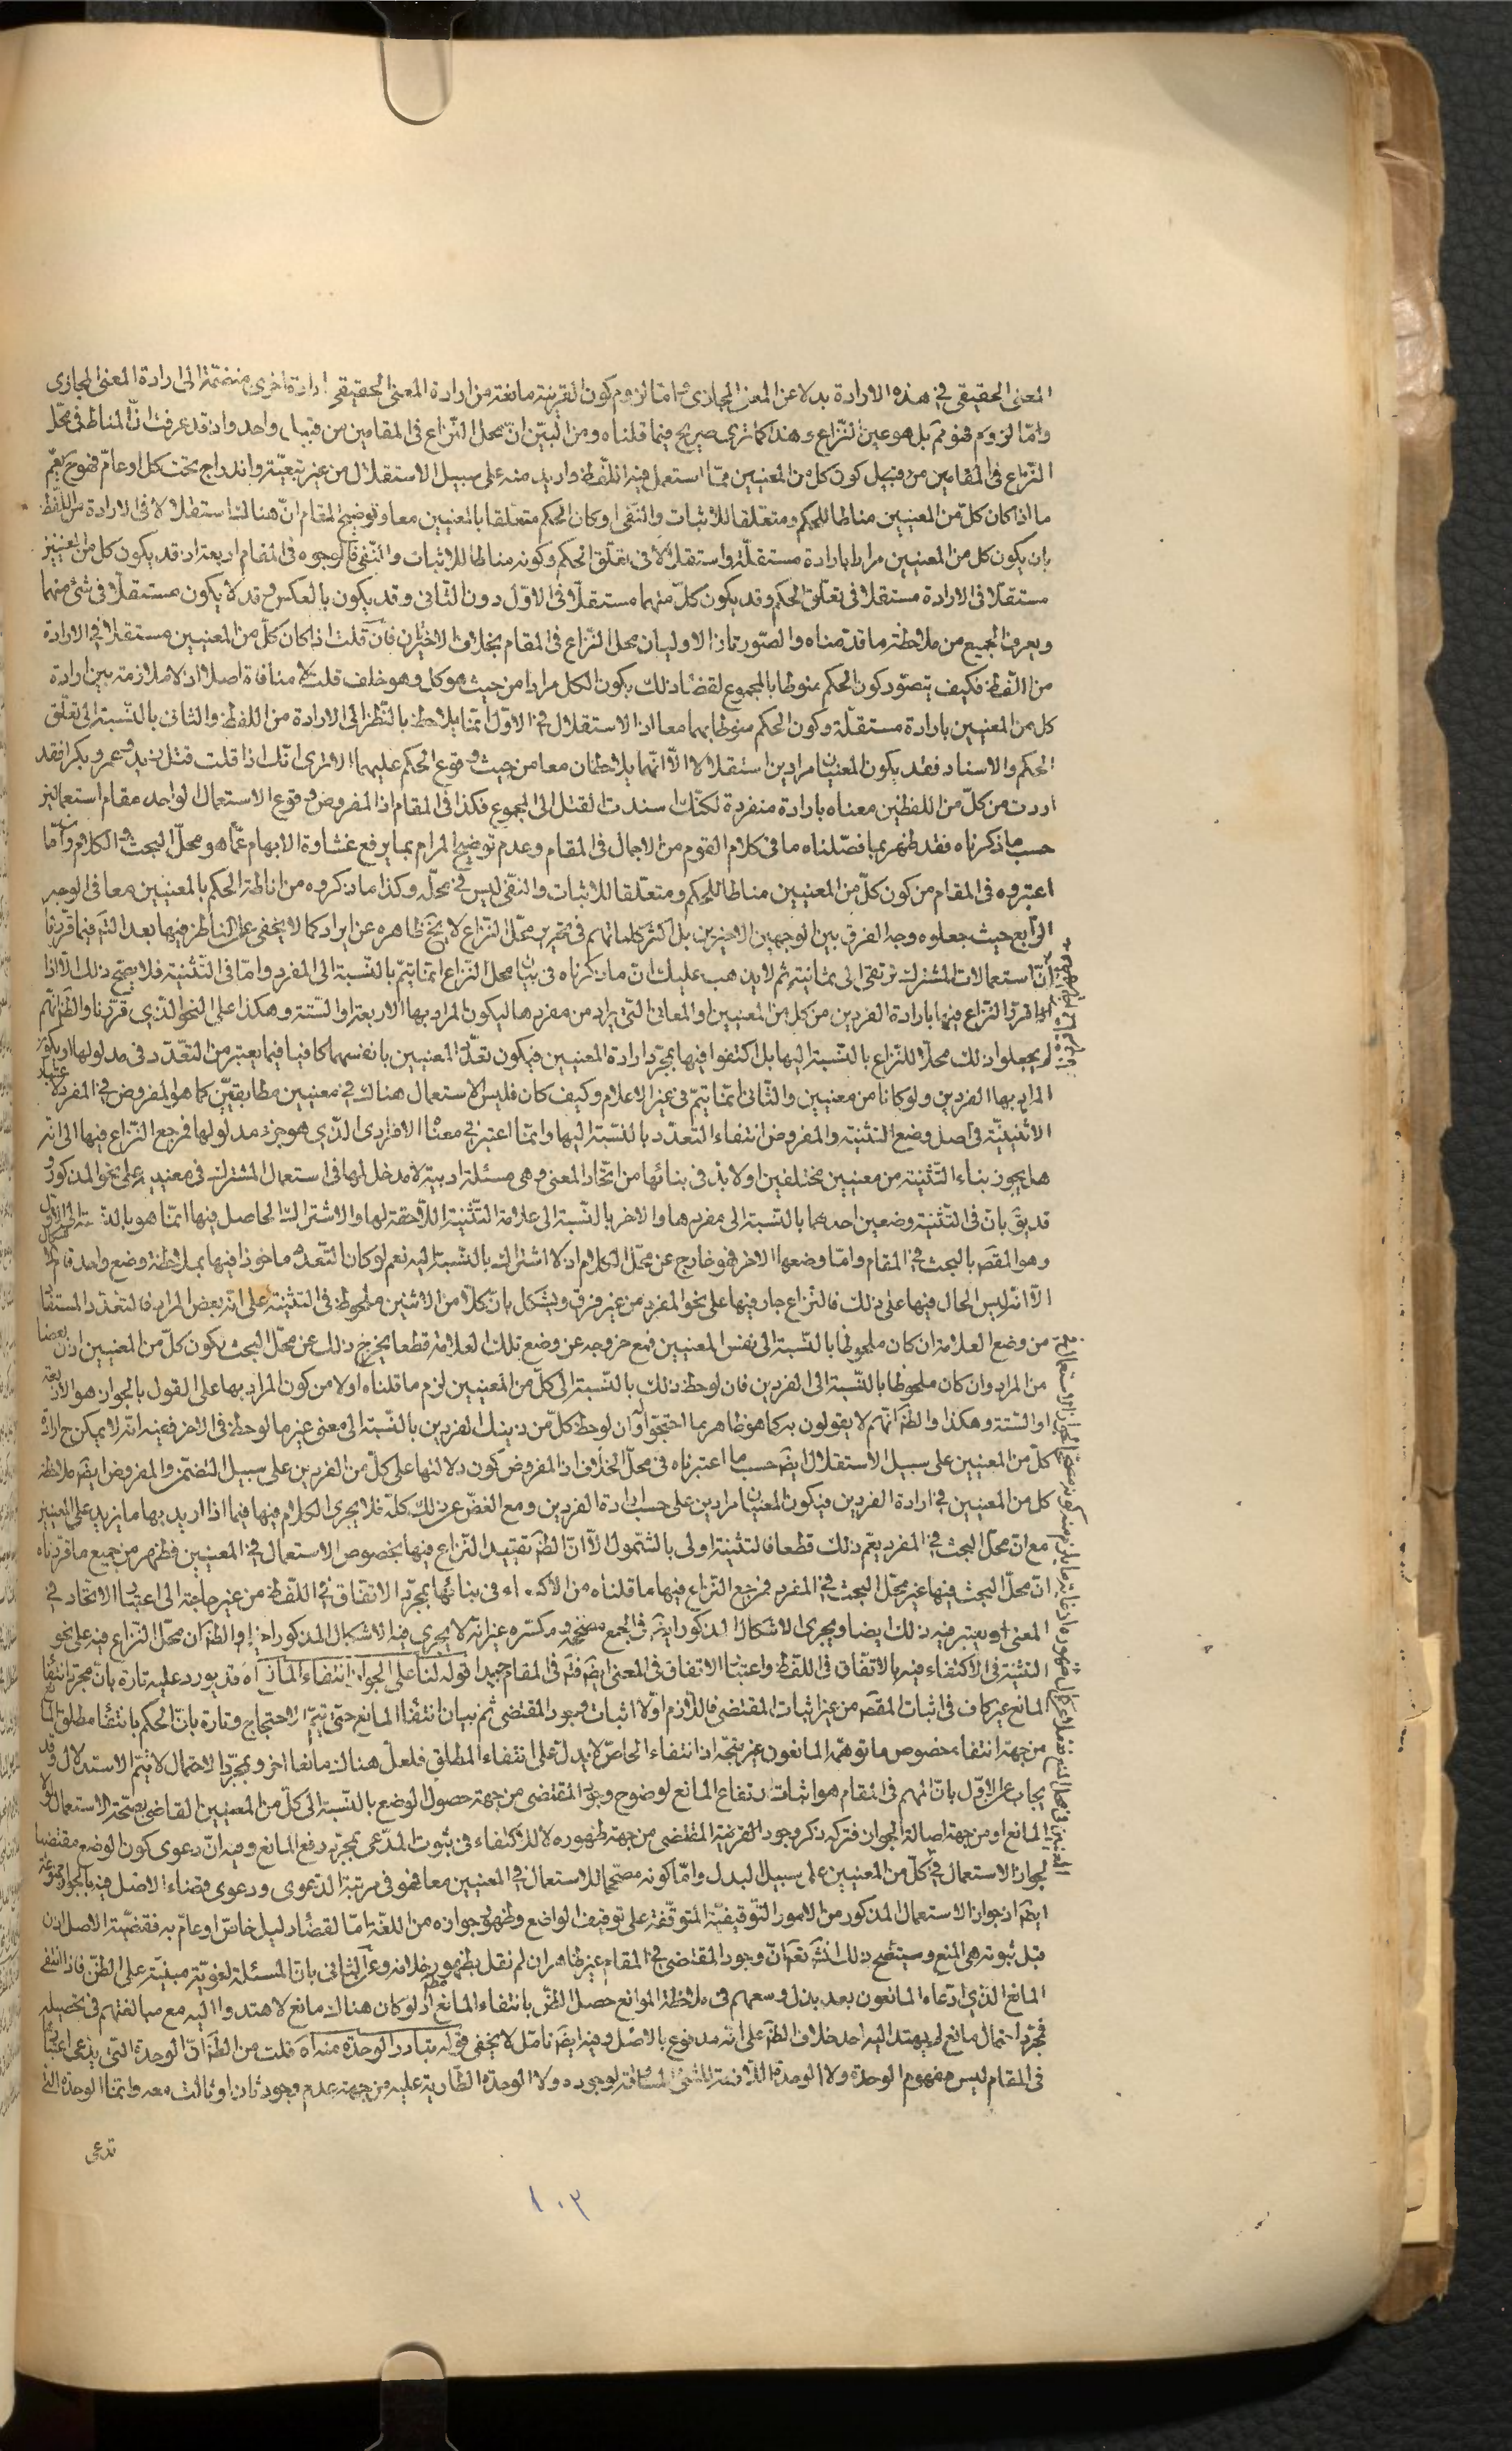 المعنى الحقيقى فى هذه الارادة بدلا عن المعنى المجازى امّا لزوم كون القرينة مانعة من ارادة المعنى الحقيقى ارادة اخرى منضمّة الى ارادة المعنى المجازى
وامّا لزوم فهو مم بل هو عين النّزاع وهذا كما ترى صريح فيما قلناه ومن البيّن انّ محلّ النّزاع فى المقامين من قبيل واحد واذ قد عرفت انّ المناط فى محلّ
النّزاع فى المقامين من قبيل كون كل من المعنيين ممّا استعمل فيه اللّفظ واريد منه على سبيل الاستقلال من غير تبعيّة واندراج تحت كل او عامّ فهو ح يعمّ
ما اذا كان كلّ من المعنيين مناطا للحكم ومتعلّقا للاثبات والنّفى او كان الحكم متعلّقا بالمعنيين معا وتوضيح المقام انّ هنالك استقلالا فى الارادة من اللّفظ
بان يكون كل من المعنيين مرادا بارادة مستقلّة واستقلالا فى تعلّق الحكم وكونه مناطا للاثبات والنّفى فالوجوه فى المقام اربعة اذ قد يكون كل من المعنيين
مستقلّا فى الارادة مستقلا فى تعلّق الحكم وقد يكون كلّ منهما مستقلّا فى الاوّل دون الثّانى وقد يكون بالعكس وقد لا يكون مستقلّا فى شئ منهما
ويعرف الجميع من ملاحظة ما قدّمناه والصّورتان الاوليان محل النّزاع فى المقام بخلاف الاخيرتين فان قلت اذا كان كلّ من المعنيين مستقلا فى الارادة
من اللّفظ فكيف يتصوّر كون الحكم منوطا بالمجموع لقضاء ذلك بكون الكل مرادا من حيث هو كل وهو خلف قلت لا منافاة اصلا اذ لا ملازمة بين ارادة
كل من المعنيين بارادة مستقلّة وكون الحكم منوطا بهما معا اذ الاستقلال فى الاوّل انّما يلاحظ بالنّظر الى الارادة من اللفظ والثانى بالنّسبة الى تعلّق
الحكم والاسناد فقد يكون المعنيان مرادين استقلالا الّا انّهما يلاحظان معا من حيث وقوع الحكم عليهما الا ترى انّك اذا قلت قتل زيد وعمرو بكرا فقد
اردت من كلّ من اللفظين معناه بارادة منفردة لكنّك اسندت القتل الى المجموع فكذا فى المقام اذ المفروض وقوع الاستعمال الواحد مقام استعمالين
حسب ما ذكرناه فقد ظهر بما فصّلناه ما فى كلام القوم من الاجمال فى المقام وعدم توضيح المرام بما يرفع غشاوة الابهام عمّا هو محلّ البحث والكلام وانّ ما
اعتبروه فى المقام من كون كلّ من المعنيين مناطا للحكم ومتعلّقا للاثبات والنّفى ليس فى محلّه وكذا ما ذكروه من اناطة الحكم بالمعنيين معا فى الوجه
الرّابع حيث جعلوه وجه الفرق بين الوجهين الاخيرين بل اكثر كلماتهم فى تحرير محلّ النّزاع لا يخ ظاهره عن ايراد كما لا يخفى على النّاظر فيها بعد التّم فيما قرّرنا
انّ استعمالات المشترك ترتقى الى ثمانية ثم لا يذهب عليك انّ ما ذكرناه فى بيان محلّ النّزاع انّما يتمّ بالنّسبة الى المفرد وامّا فى التّثنية فلا يصحّ ذلك الّا اذا
قرّر النّزاع فيها بارادة الفردين من كل من المعنيين او المعانى التى يراد من مفردها ليكون المراد بها الاربعة او السّتة وهكذا على النحو الّذى قرّرنا والظ انّهم
لم يجعلوا ذلك محلّا للنّزاع بالنّسبة اليها بل اكتفوا فيها بمجرّد ارادة المعنيين فيكون تعدّد المعنيين بانفسهما كافيا فيما يعتبر من التّعدّد فى مدلولها او يكون
المراد بها الفردين ولو كانا من معنيين والثّانى انّما يتمّ فى غير الاعلام وكيف كان فليس الاستعمال هنالك فى معنيين مطابقيّين كما هو المفروض فى المفرد لاعتبار
الاثنينيّة فى اصل وضع التثنية والمفروض انتفاء التعدّد بالنّسبة اليها وانّما اعتبر فى معناه الافرادى الّذى هو جزء مدلولها فمرجع النّزاع فيها الى انّه
هل يجوز بناء التّثنية من معنيين مختلفين او لا بدّ فى بنائها من اتّحاد المعنى وهى مسئلة ادبيّة لا مدخل لها فى استعمال المشترك فى معنييه على نحو المذكور و
قد يق بانّ فى التّثنية وضعين احدهما بالنّسبة الى مفردها والاخر بالنّسبة الى علامة التّثنية اللّاحقة لها والاشتراك الحاصل فيها انّما هو بالنّسبة الى الاوّل
وهو المقص بالبحث فى المقام وامّا وضعها الاخر فهو خارج عن محلّ الكلام اذ لا اشتراك بالنّسبة اليه نعم لو كان التّعدّد ماخوذا فيها بملاحظة وضع واحد قام
الّا انّه ليس الحال فيها على ذلك فالنّزاع جار فيها على نحو المفرد من غير فرق ويشكل بانّ كلّا من الاثنين ملحوظ فى التثنية على انّه بعض المراد فالتعدّد المستفاد
من وضع العلامة ان كان ملحوظا بالنّسبة الى نفس المعنيين فمع خروجه عن وضع تلك العلامة قطعا يخرج ذلك عن محلّ البحث بكون كلّ من المعنيين اذن بعضا
من المراد وان كان ملحوظا بالنّسبة الى الفردين فان لوحظ ذلك بالنّسبة الى كلّ من المعنيين لزم ما قلناه اولا من كون المراد بها على القول بالجواز هو الاربعة
او السّتة وهكذا والظ انّهم لا يقولون به كما هو ظاهر بما احتجّوا وان لوحظ كلّ من ذينك الفردين بالنّسبة الى معنى غير ما لوحظ فى الاخر ففيه انّه لا يمكن ح ارادة
كلّ من المعنيين على سبيل الاستقلال ايض حسب ما اعتبرناه فى محلّ الخلاف اذ المفروض كون دلالتها على كلّ من الفردين على سبيل التضمّن والمفروض ايض ملاحظة
كل من المعنيين فى ارادة الفردين فيكون المعنيان مرادين على حسب ارادة الفردين ومع الغضّ عن ذلك كلّه فلا يجرى الكلام فيها فيما اذا اريد بها ما يزيد على المعنيين
مع انّ محلّ البحث فى المفرد يعمّ ذلك قطعا فالتثنية اولى بالشّمول الّا انّ الظ تقييد النّزاع فيها بخصوص الاستعمال فى المعنيين فظهر من جميع ما قررناه
انّ محلّ البحث فيها غير محلّ البحث فى المفرد فمرجع النّزاع فيها ما قلناه من الاكتفاء فى بنائها بمجرّد الاتّفاق فى اللّفظ من غير حاجة الى اعتبار الاتّحاد فى
المعنى او يعتبر فيه ذلك ايضا ويجرى الاشكال المذكور ايض فى الجمع مصحّحه ومكسّره غير انّه لا يجرى فيه الاشكال المذكور اخيرا والظ ان محلّ النّزاع فيه على نحو
التثنية فى الاكتفاء فيه بالاتّفاق فى اللّفظ واعتبار الاتفاق فى المعنى ايض فتم فى المقام جيدا قوله لنا على الجواز انتفاء المانع اه قد يورد عليه تارة بانّ مجرّد انتفاء
المانع غير كاف فى اثبات المقص من غير اثبات المقتضى فاللّازم اوّلا اثبات وجود المقتضى ثم بيان انتفاء المانع حتى يتمّ الاحتجاج وتارة بانّ الحكم بانتفاء مطلق المانع
من جهة انتفاء خصوص ما توهّمه المانعون غير متّجه اذ انتفاء الخاصّ لا يدلّ على انتفاء المطلق فلعلّ هناك مانعا اخر وبمجرّد الاحتمال لا يتمّ الاستدلال وقد
يجاب عن الاوّل بانّ المهم فى المقام هو اثبات ارتفاع المانع لوضوح وجود المقتضى من جهة حصول الوضع بالنّسبة الى كلّ من المعنيين القاضى بصحّة الاستعمال لولا
المانع او من جهة اصالة الجواز فترك ذكر وجود القرينة المقتضى من جهة ظهوره لا للاكتفاء فى ثبوت المدّعى بمجرّد رفع المانع وفيه انّ دعوى كون الوضع مقتضيا
لجواز الاستعمال فى كلّ من المعنيين على سبيل البدل وامّا كونه مصحّحا للاستعمال فى المعنيين معا فهو فى مرتبة الدّعوى ودعوى قضاء الاصل فيه بالجواز ممنوعة
ايض اذ جواز الاستعمال المذكور من الامور التّوقيفيّة المتوقّفة على توقيف الواضع وظهور جوازه من اللّغة امّا لقضاء دليل خاصّ او عامّ به فقضيّة الاصل اذن
قبل ثبوته هى المنع وسيتّضح ذلك انش تعم انّ وجود المقتضى فى المقام غير ظاهر ان لم نقل بظهور خلافه وعن الثّانى بانّ المسئلة لغويّة مبنيّة على الظنّ فاذا انتفى
المانع الّذى ادّعاه المانعون بعد بذل وسعهم فى ملاحظة الموانع حصل الظنّ بانتفاء المانع مط اذ لو كان هناك مانع لاهتدوا اليه مع مبالغتهم فى تحصيله
فمجرّد احتمال مانع لم يهتد اليه احد خلاف الظ على انّه مدفوع بالاصل وفيه ايض تامّل لا يخفى قوله تبادر الوحدة منه اه قلت من الظ انّ الوحدة التى يدّعى اعتبارها
فى المقام ليس مفهوم الوحدة ولا الوحدة اللّازمة للشئ المساوقة لوجوده ولا الوحدة الطّارية عليه من جهة عدم وجود ثان او ثالث معه وانّما الوحدة الّتى
تدعى
١٠٢